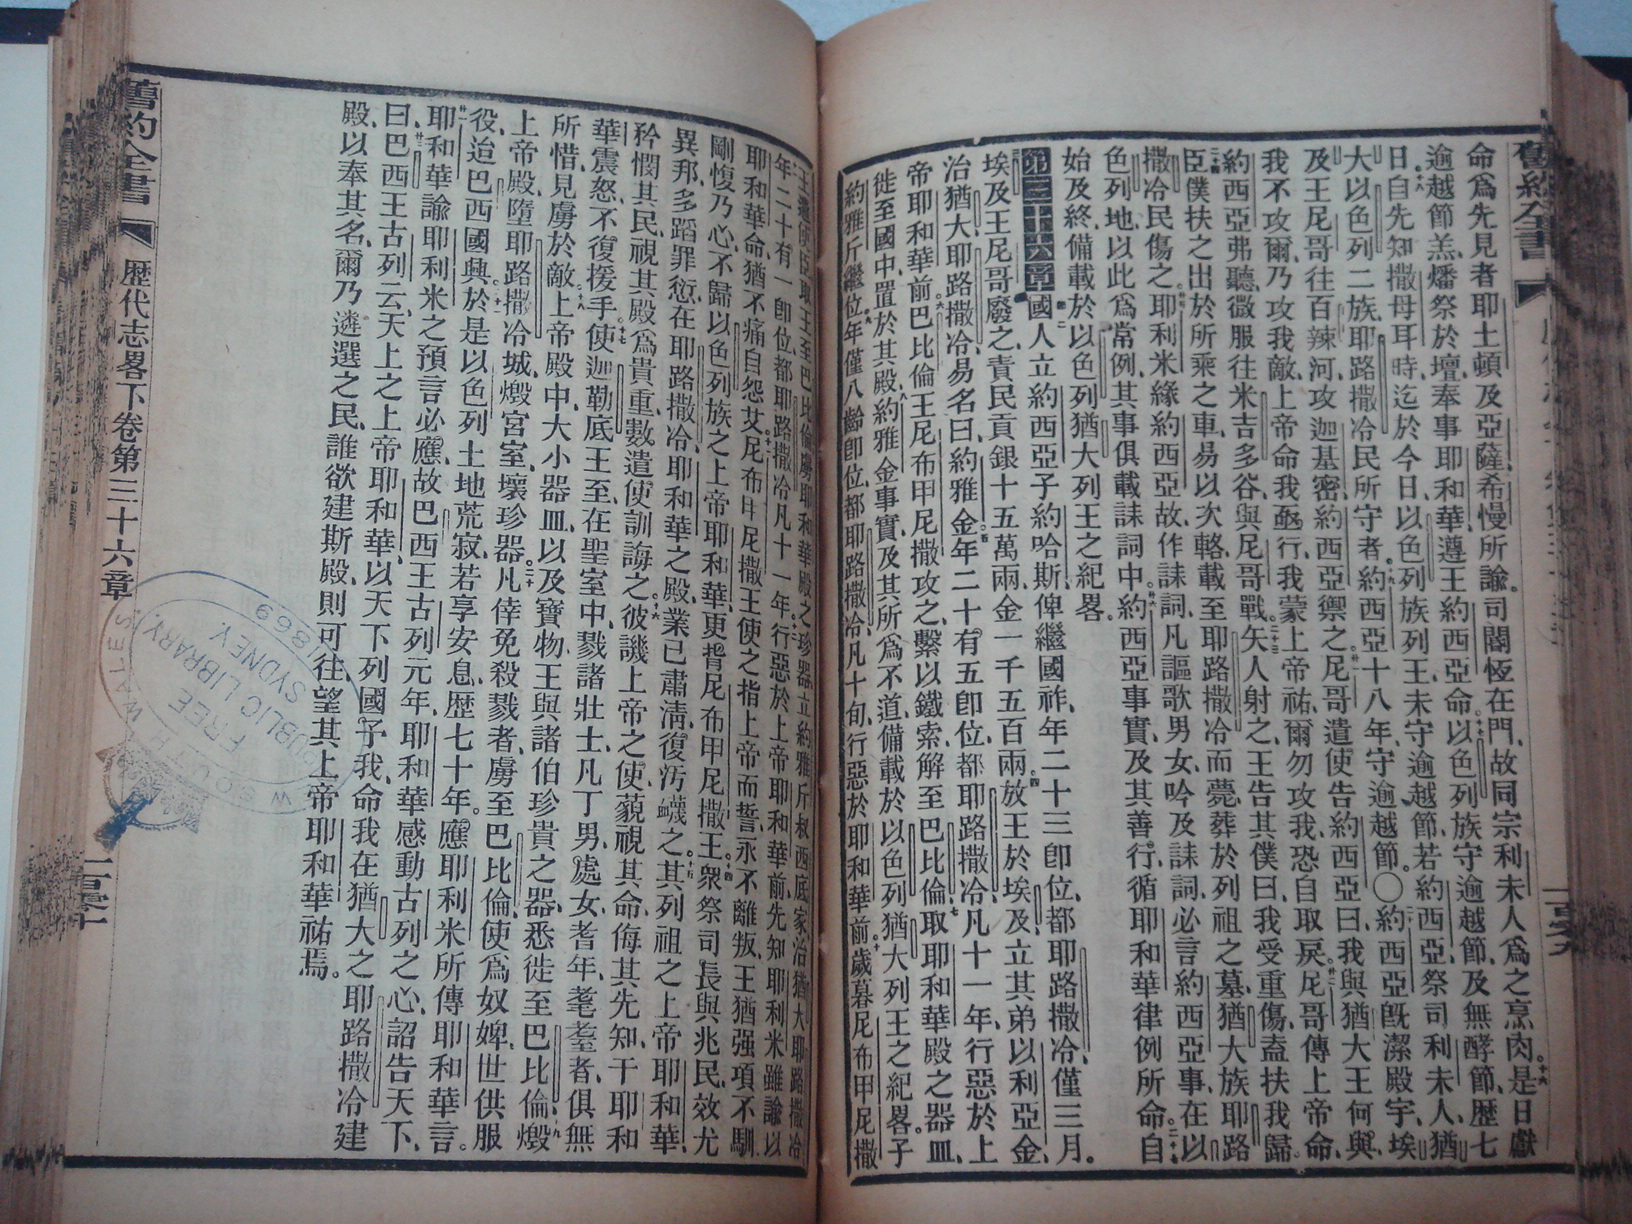 舊約全書
命爲先見者耶土頓及亞薩希慢所諭。司閽恆在門、故同宗利未人爲之烹肉。是日獻
逾越節羔、燔祭於壇、奉事耶和華、遵王約西亞命。以色列族守逾越節、及無酵節、歷七
日。自先知撒母耳時、迄於今日、以色列族列王未守逾越節、若約西亞、祭司利未人、猶
大以色列二族、耶路撒冷民所守者。約西亞十八年、守逾越節。〇約西亞旣潔殿宇、埃
及王尼哥往百辣河、攻迦基密、約西亞禦之。尼哥遣使告約西亞曰、我與猶大王何與、
我不攻爾、乃攻我敵、上帝命我亟行、我蒙上帝祐、爾勿攻我、恐自取戾。尼哥傳上帝命、
約西亞弗聽、微服往米吉多谷、與尼哥戰。矢人射之、王告其僕曰、我受重傷、盍扶我歸。
臣僕扶之出於所乘之車、易以次輅、載至耶路撒冷而薨、葬於列祖之墓、猶大族耶路
撒冷民傷之。耶利米緣約西亞故、作誄詞、凡謳歌男女、吟及誄詞、必言約西亞事、在以
色列地、以此爲常例、其事俱載誄詞中。約西亞事實、及其善行、循耶和華律例所命、自
始及終、備載於以色列猶大列王之紀畧。
第三十六章國人立約西亞子約哈斯、俾繼國祚、年二十三卽位、都耶路撒冷、僅三月。
埃及王尼哥廢之、責民貢銀十五萬兩、金一千五百兩、放王於埃及、立其弟以利亞金、
治猶大耶路撒冷、易名曰約雅金。年二十有五卽位、都耶路撒冷、凡十一年、行惡於上
帝耶和華前。巴比倫王尼布甲尼撒攻之、繫以鐵索、解至巴比倫、取耶和華殿之器皿、
徙至國中、置於其殿。約雅金事實、及其所爲不道、備載於以色列猶大列王之紀畧。子
約雅斤繼位。年僅八齡卽位、都耶路撒冷、凡十旬、行惡於耶和華前。歲暮尼布甲尼撒
王遣使臣取王至巴比倫、虜耶和華殿之珍器、立約雅斤叔西底家、治猶大耶路撒冷。
年二十有一卽位、都耶路撒冷、凡十一年。行惡於上帝耶和華前、先知耶利米雖諭以
耶和華命、猶不痛自怨艾。尼布甲尼撒王使之指上帝而誓、永不離叛、王猶强項不馴、
剛愎乃心、不歸以色列族之上帝耶和華、更背尼布甲尼撒王。衆祭司長與兆民效尤
異邦、多蹈罪愆、在耶路撒冷、耶和華之殿、業已肅淸、復汚衊之。其列祖之上帝耶和華、
矜憫其民、視其殿爲貴重、數遣使訓誨之。彼譏上帝之使、藐視其命、侮其先知、干耶和
華震怒、不復援手。使迦勒底王至、在聖室中、戮諸壯士、凡丁男處女、耆年耄耋者、俱無
所惜、見虜於敵。上帝殿中大小器皿、以及寶物、王與諸伯珍貴之器、悉徙至巴比倫。燬
上帝殿、隳耶路撒冷城、燬宮室、壞珍器。凡倖免殺戮者、虜至巴比倫、使爲奴婢、世供服
役、迨巴西國興。於是以色列土地荒寂、若享安息、歷七十年。應耶利米所傳耶和華言。
耶和華諭耶利米之預言必應、故巴西王古列元年、耶和華感動古列之心、詔吿天下、
曰、巴西王古列云、天上之上帝耶和華、以天下列國予我、命我在猶大之耶路撒冷建
殿、以奉其名、爾乃遴選之民、誰欲建斯殿、則可往、望其上帝耶和華祐焉。
舊約全書 歷代志畧下卷 第三十六章
FREE
PUBLIC LIBRARY
SYDNEY
1869